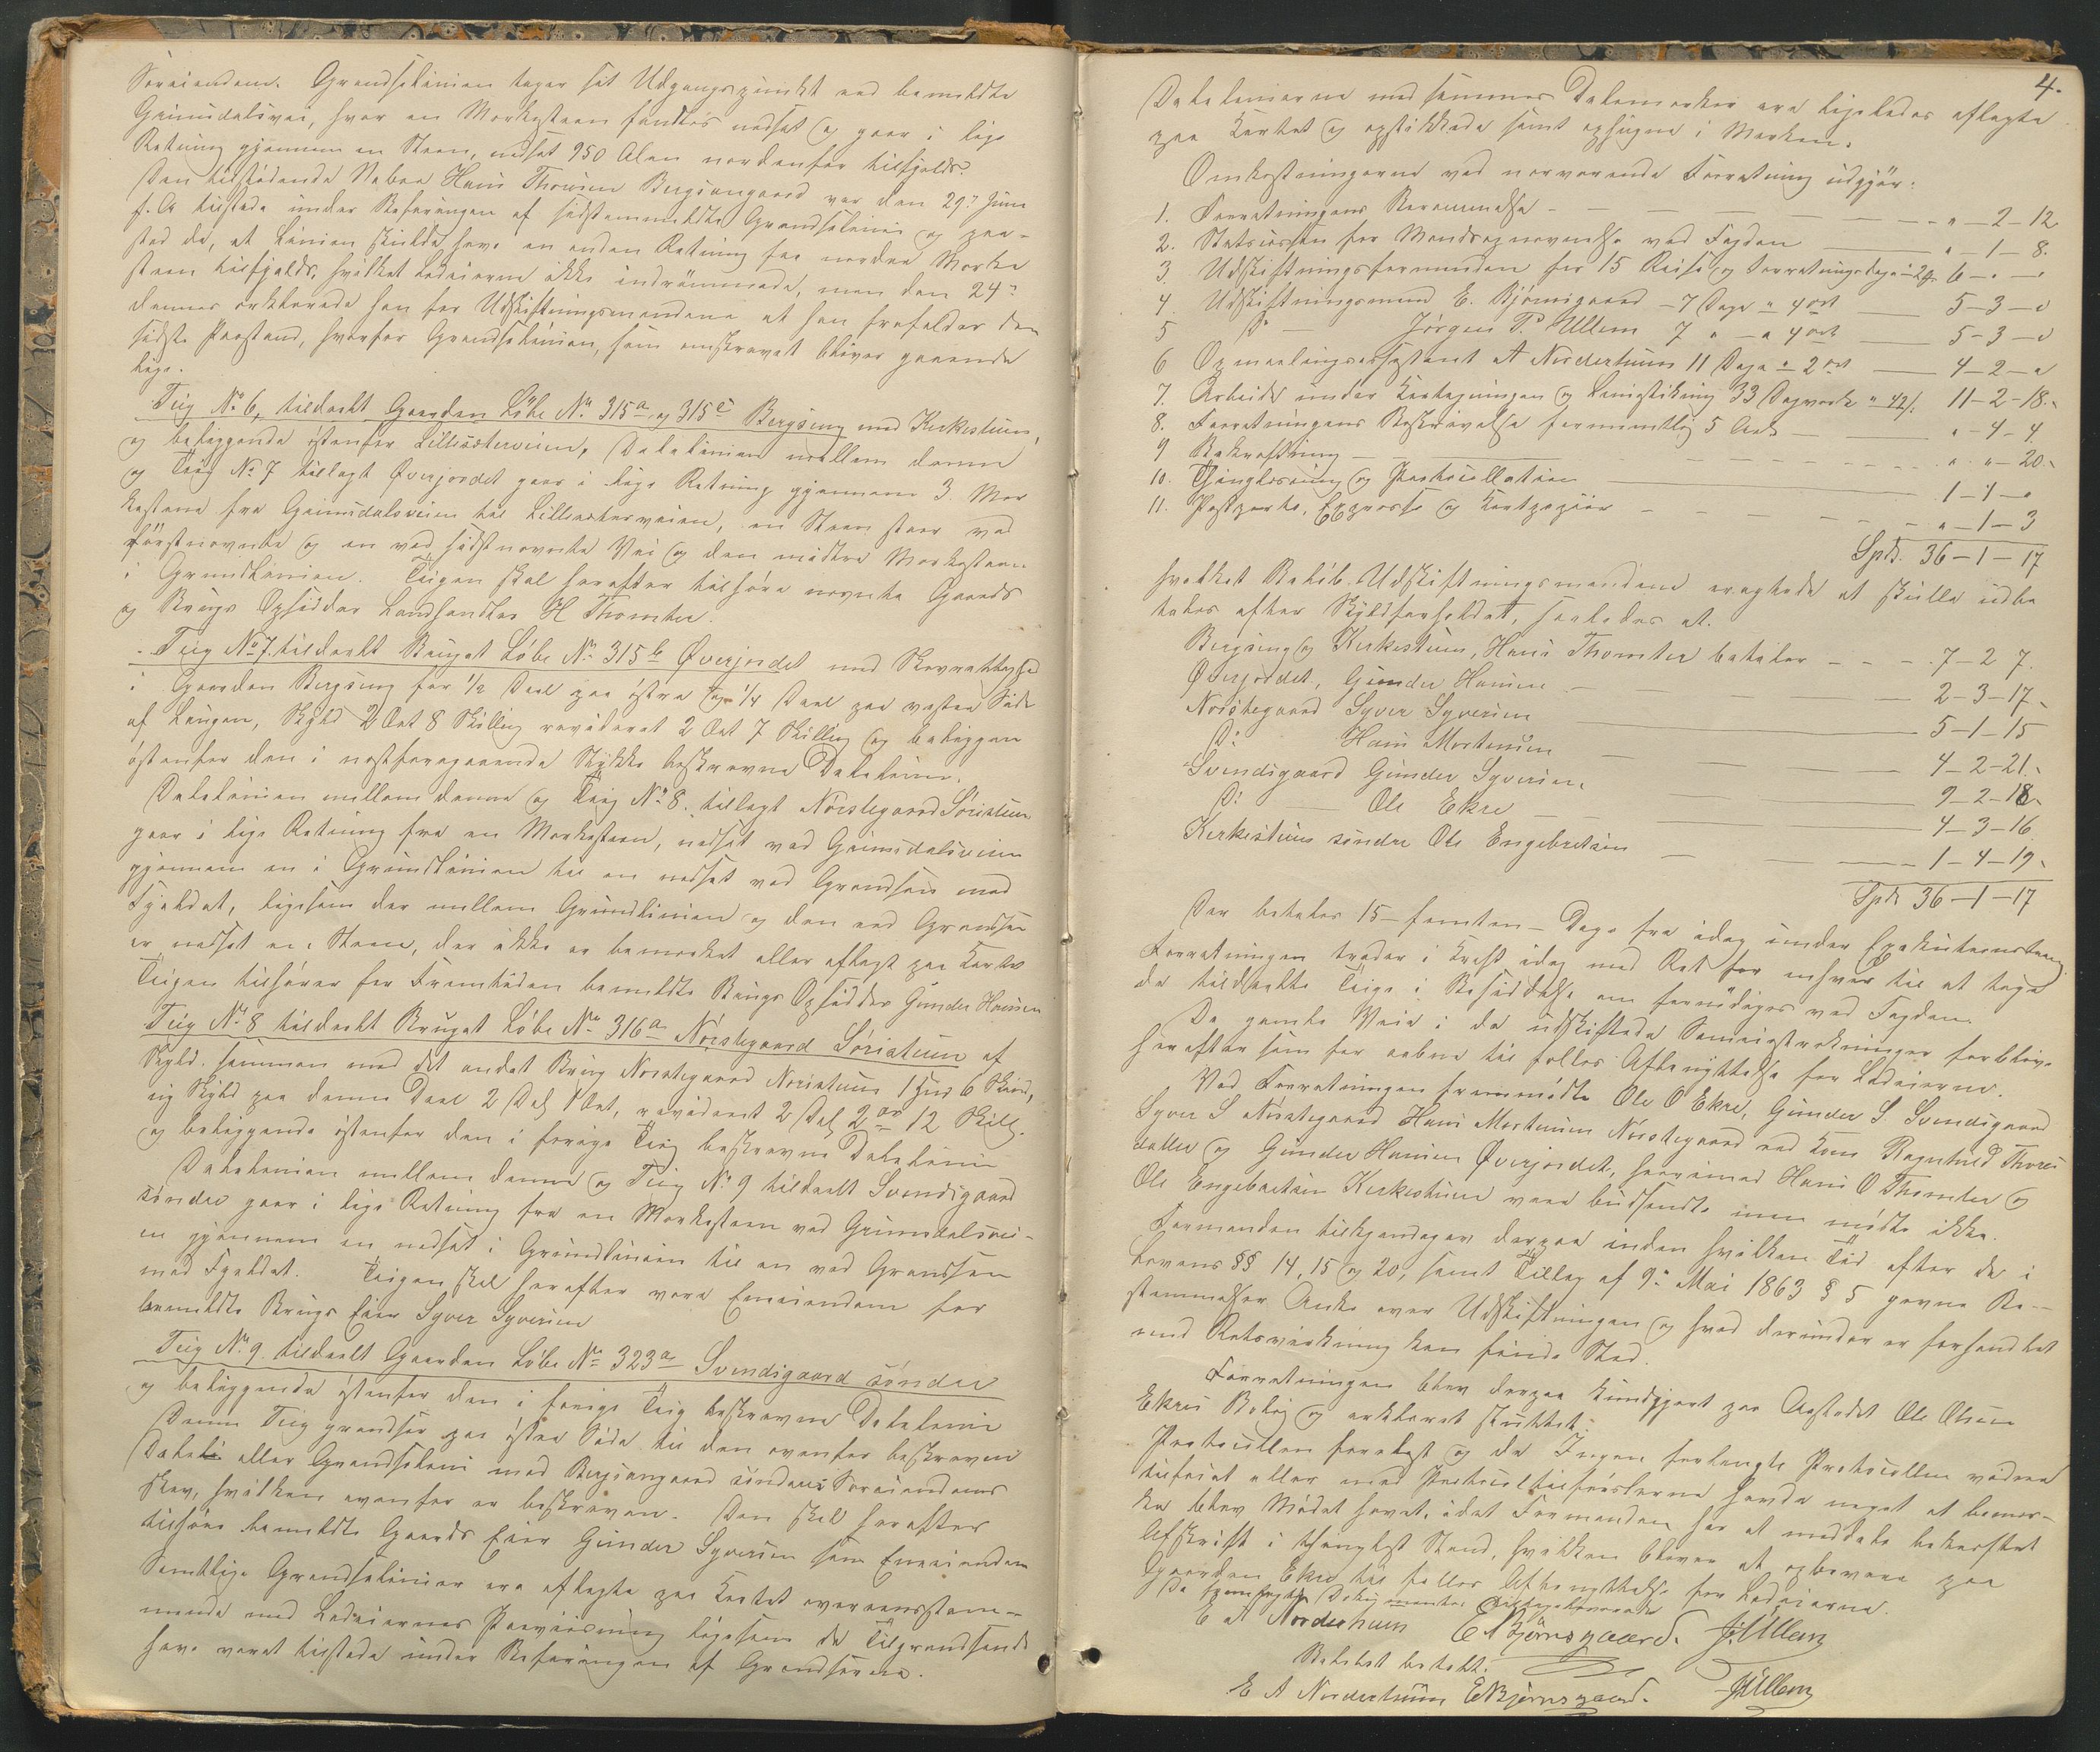 Særeiendom. Grændselinien tager sit Udgangspunkt ved bemeldte
Grimsdalsvei, hvor en Markesteen fandtes nedsat og gaar i lige
Retning gjennem en Steen, nedsat 950 Alen nordenfor tilfjelds.
Den tilstødende Naboe Hans Thoresen Bergsengaard var den 29de Juni
f. A. tilstede under Befaringen af sidstanmeldte Grændselinie og paa-
stod da, at Linien skulde have en anden Retning fra nordre Marke
steen tilfjelds, hvilket Lodeierne ikke indrømmede, men den 24de
dennes erklærede han for Udskiftningsmændene at han frafalder den
sidste Paastand, hvorfor Grændselinien, som omskrevet bliver gaaende
lige.
Teig No 6, tildeelt Gaarden Løbe No 315a og 315c Bergseng med Kirkestuen,
og beliggende østenfor Lillesæterveien, Delelinien mellem denne
og Teig No 7 tillagt Øverjordet gaar i lige Retning gjennem 3 Mar
kestene fra Grimsdalsveien til Lillesæterveien, en Steen staar ved
førstnævnte og en ved sidstnævnte Vei og den midtre Markesteen
i Grundlinien. Teigen skal herefter tilhøre nævnte Gaards
og Brugs Opsidder Landhandler H Thomter.
Teig No 7. tildeelt Bruget Løbe No 315b Øverjordet med Skovrettighed
i Gaarden Bergseng for 1/2 Deel paa østre og 1/4 Deel paa vestre Side
af Laugen, Skyld 2 Ort 8 Skilling revideret 2 Ort 7 Skilling og beliggen
østenfor den i næstforegaaende Stykke beskrevne Delelinie.
Delelinien mellem denne og Teig No 8. tillagt Nørstegaard Søristuen
gaar i lige Retning fra en Markesteen, nedsat ved Grimsdalsveien
gjennem en i Grundlinien til en nedsat ved Grændsen mod
Fjeldet, ligesom der mellem Grundlinien og den ved Grændsen
er nedsat en Steen, der ikke er bemærket eller aflagt paa Kartet
Teigen tilhører for Fremtiden bemeldte Brugs Opsidder Gunder Hansen
Teig No 8 tildeelt Bruget Løbe No 316a Nørstegaard Søristuen af
Skyld sammen med det andet Brug Nørstegaard Noristuen 1 Hud 6 Skind,
ny Skyld paa denne Deel 2 Dal 1 Ort, revideret 2 Dal 2 Ort 12 Skill.
og beliggende østenfor den i forrige Teig beskrevne Delelinie
Delelinien mellem denne og Teig No 9 tildeelt Svendsgaard
søndre gaar i lige Retning fra en Markesteen ved Grimsdalsvei-
en gjennem en nedsat i Grundlinien til en ved Grændsen
mod Fjeldet. Teigen skal herefter være Eneeiendom for
bemeldte Brugs Eier Syver Syversen
Teig No. 9. tildeelt Gaarden Løbe No 323a Svendsgaard søndre
og beliggende østenfor den i forrige Teig beskrevne Delelinie
Denne Teig grændser paa østre Side til den ovenfor beskrevne
Deleli eller Grændselinie mod Bergsengaard søndres Særeiendoms
skov, hvilken ovenfor er beskreven. Den skal herefter
tilhøre bemeldte Gaards Eier Gunder Syversen som Eneeiendom
Samtlige Grændselinier ere aflagte paa Kartet overensstem-
mende med Lodeiernes Paaviisning ligesom de Tilgrændsende
have været tilstede under Befaringen af Grændserne.
4.
Delelinierne med sammes Delemærker ere ligeledes aflagte
paa Kartet og opstikkede samt ophugne i Marken.
Omkostningerne ved nærværende Forretning udgjør:
1. Forretningens Berammelse - " - 2 - 12
2. Statscassen for Mændsopnævnelse ved Fogden " 1 - 8.
3. Udskiftningsformanden for 15 Reise og Forretningsdage à 2 ort 6 - " - "
4. Udskiftningsmand E. Bjørnsgaard - 7 Dage à 4 ort 5 - 3 - "
5 Do - Jørgen P. Ullern 7 " - à 4 ort 5 - 3 - "
6 Opmaalingsassistent A Norderhuus 11 Dage à 2 ort 4 - 2 - "
7. Arbeide under Kartlægningen og Liniestikning 33 Dagværk à 42 s. 11 - 2 - 18.
8. Forretningens Beskrivelse formentlig 5 Ark " - 4 - 4
9 Bekræftning " " - 20.
10. Thinglæsning og Protocollation 1 - 1 - "
11. Postporto, Expresse og Kartpapiir " - 1 - 3
Spd. 36 - 1 - 17
hvilket Beløb Udskiftningsmændene eragtede at skulle udbe
tales efter Skyldforholdet, saaledes at.
Bergseng og Kirkestuen, Hans Thomter betaler - - - 7 - 2 7.
Øverjordet, Gunder Hansen 2 - 3 - 17
Nørstegaard Syver Syversen 5 - 1 - 15
Do Hans Mortensen 4 - 2 - 21.
Svendsgaard Gunder Syversen, 9 - 2 - 18
Do Ole Ekre 4 - 3 - 16
Kirkestuen søndre Ole Engebretsen 1 - 4 - 19
Spd 36 - 1 - 17
Der betales 15 - femten - Dage fra idag under Exekutionstvang.
Forretningen træder i Kraft idag med Ret for enhver til at tage
de tildeelte Teige i Besiddelse om fornødiges ved Fogden.
De gamle Veie i de udskiftede Sameiestrækninger forblive
herefter som før aabne til fælles Afbenyttelse for Lodeierne.
Ved Forretningen fremmødte Ole O Ekre, Gunder S. Svendsgaard
Syver S Nørstegaard Hans Mortensen Nørstegaard ved Kone Ragnhild Thores
datter og Gunder Hansen Øverjordet, hvorimod Hans O Thomter og
Ole Engebretsen Kirkestuen vare budsendte men mødte ikke.
Formanden tilkjendegav derpaa inden hvilken Tid efter de i
Lovens §§ 14, 15 og 20, samt Tillæg af 9de Mai 1863 § 5 givne Be-
stemmelser Anke over Udskiftningen og hvad derunder er forhandlet
med Retsvirkning kan finde Sted.
Forretningen blev derpaa kundgjort paa Aastedet Ole Olsen
Ekres Bolig og erklæret sluttet.
Protocollen forelæst og da Ingen forlangte Protocollen videre
tilført eller mod Protocoltilførslerne havde noget at bemær-
ke blev Mødet hævet, idet Formanden har at meddele bekræftet
Afskrift i thinglæst Stand, hvilken bliver at opbevare paa
Gaarden Ekre til fælles Afbenyttelse for Lodeierne.
De fremlagte Dokumenter
E A Norderhuus E Bjørnsgaard. J. Ullern
Beløbet betalt.
E A Norderhuus E Bjørnsgaard. J Ullern